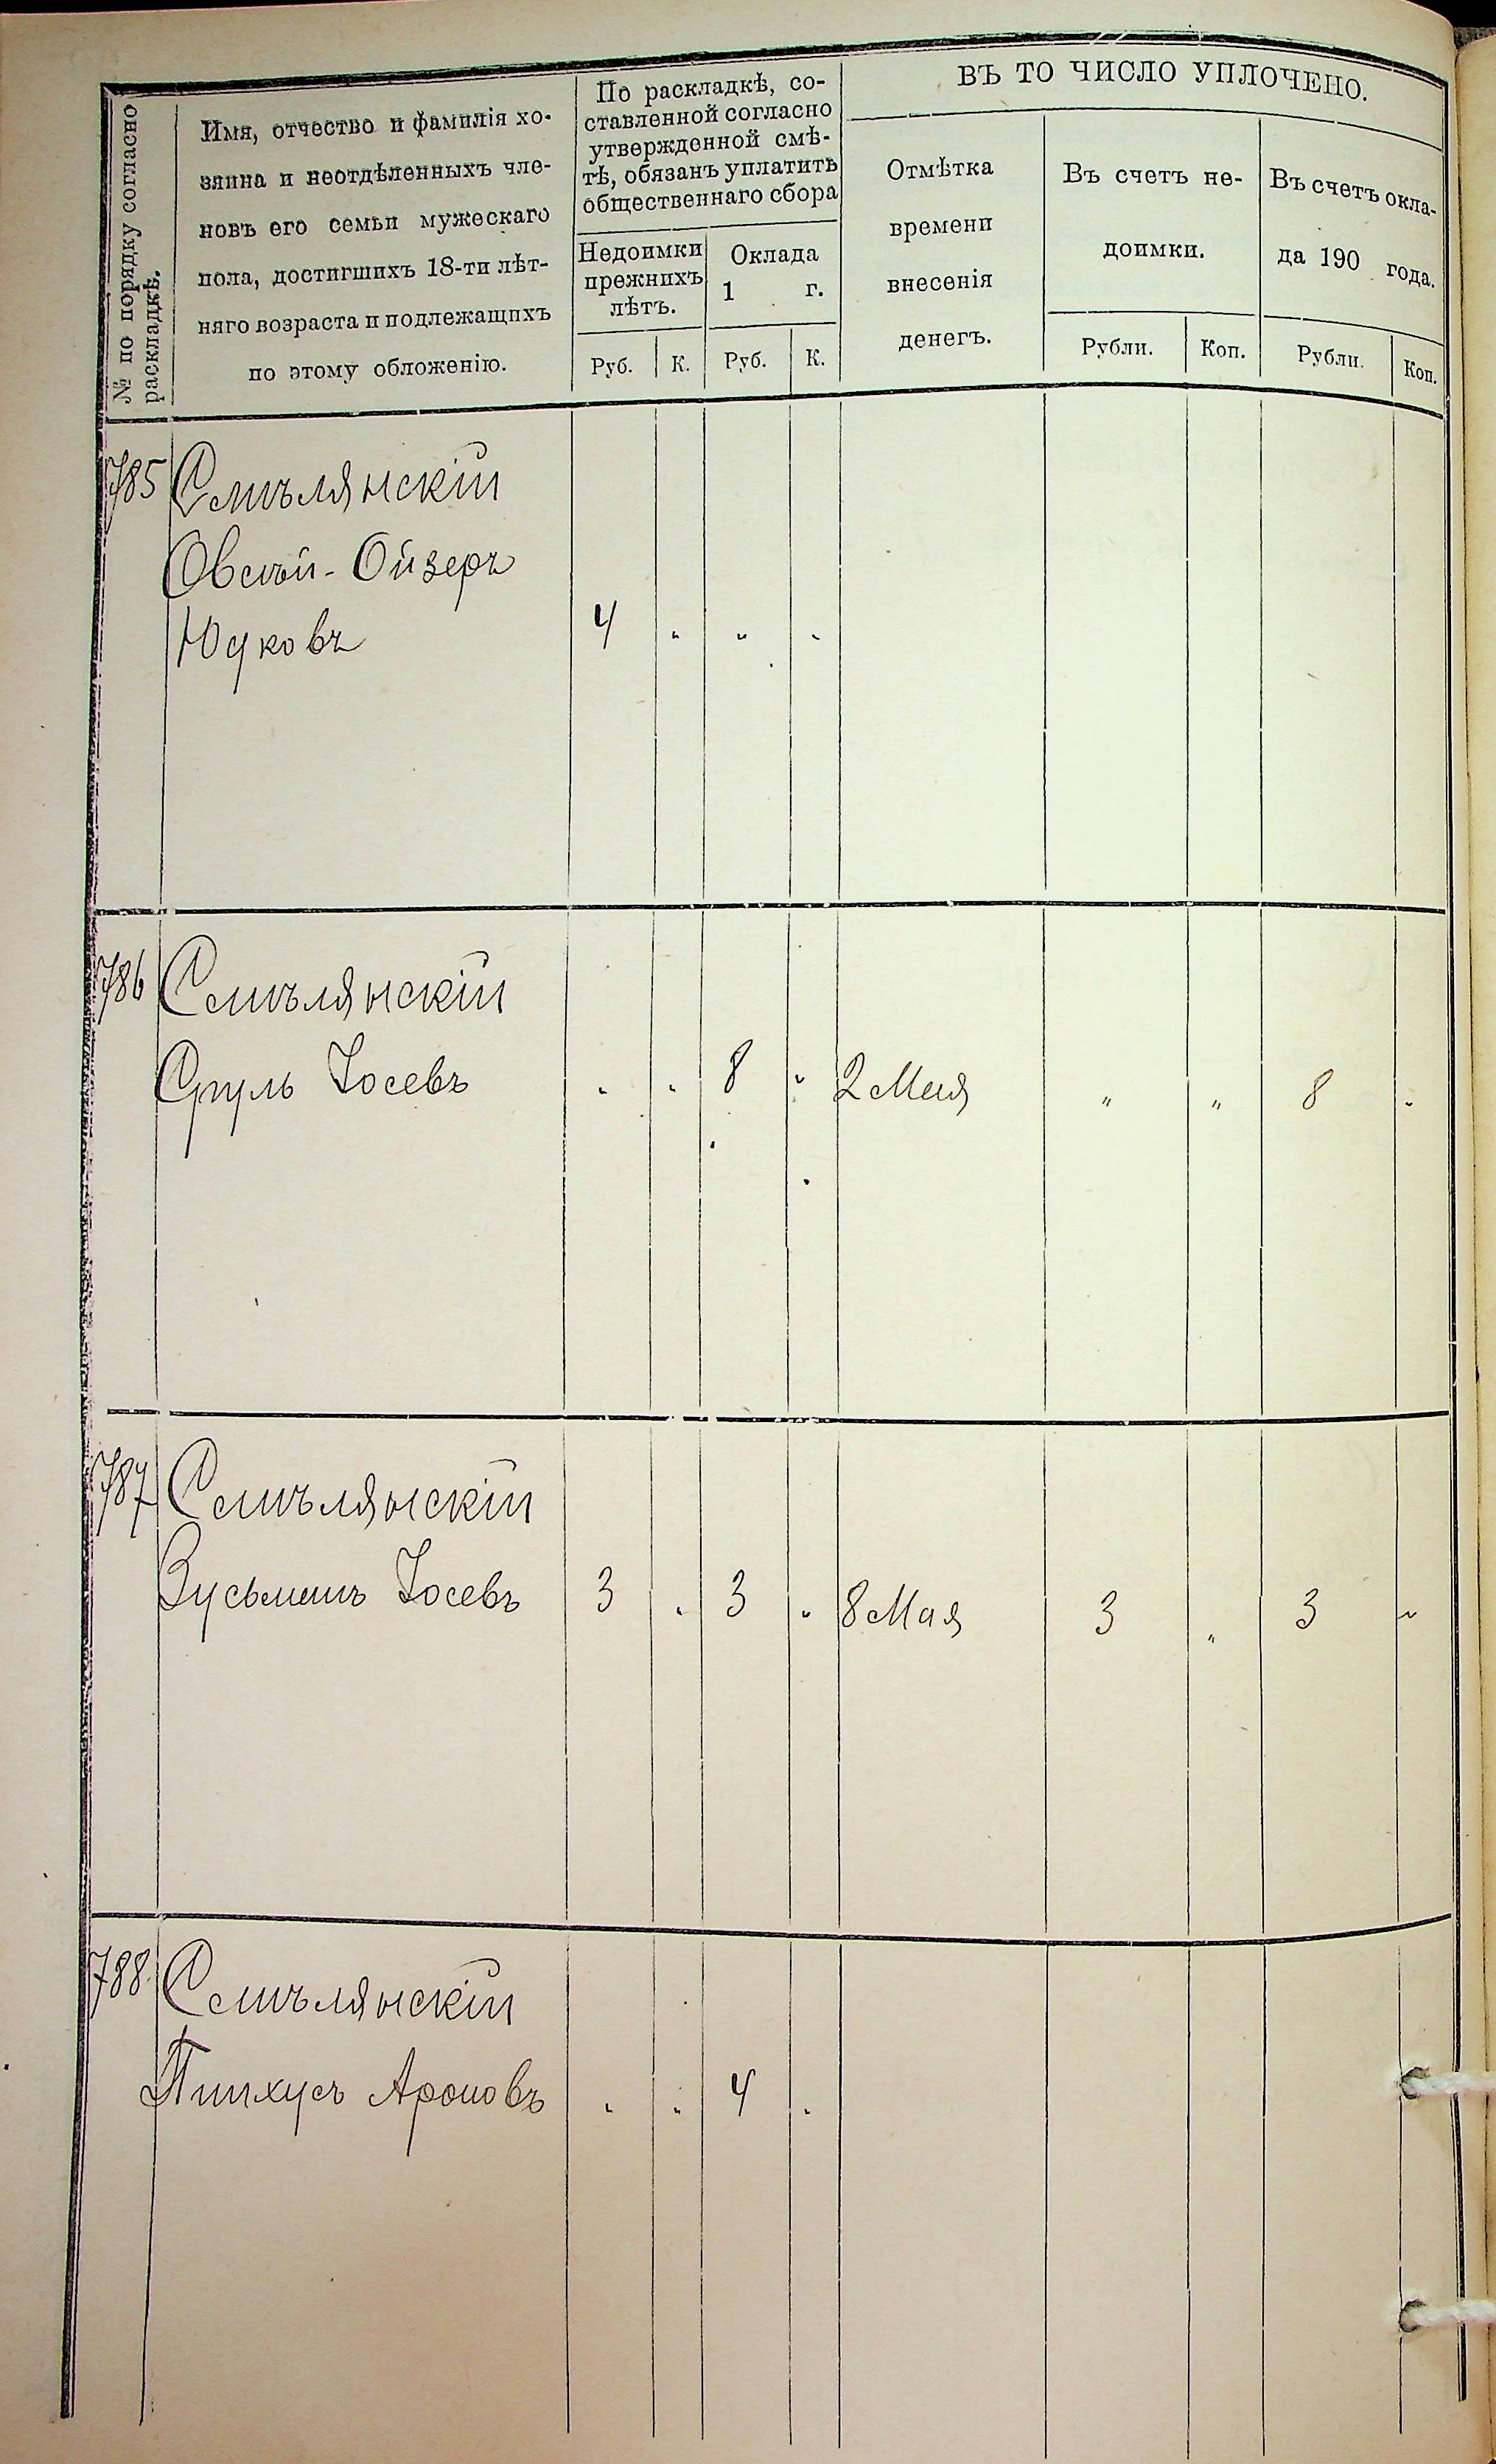 № по порядку согласно
раскладкѣ.
Имя, отчество и фамилія хо-
зяина и неотдѣленныхъ чле-
новъ его семьи мужескаго
пола, достигшихъ 18-ти лѣт-
няго возраста и подлежащихъ
по этому обложенію.
По раскладкѣ, со-
ставленной согласно
утвержденной смѣ-
тѣ, обязанъ уплатить
общественнаго сбора
Недоимки
прежнихъ
лѣтъ.
Оклада
1 г.
Руб. К. Руб. К.
ВЪ ТО ЧИСЛО УПЛОЧЕНО.
Отмѣтка
времени
внесенія
денегъ.
Въ счетъ не-
доимки.
Рубли. Коп.
Въ счетъ окла-
да 190 года.
Рубли. Коп.
785 Смѣлянскій
Овсѣй-Ойзеръ
Юдковъ 4 " " "
786 Смѣлянскій
Сруль Іосевъ " " 8 " 2 Мая " " 8 "
787 Смѣлянскій
Зусьманъ Іосевъ 3 " 3 " 8 Мая 3 " 3 "
788 Смѣлянскій
Пинхусъ Ароновъ " " 4 "